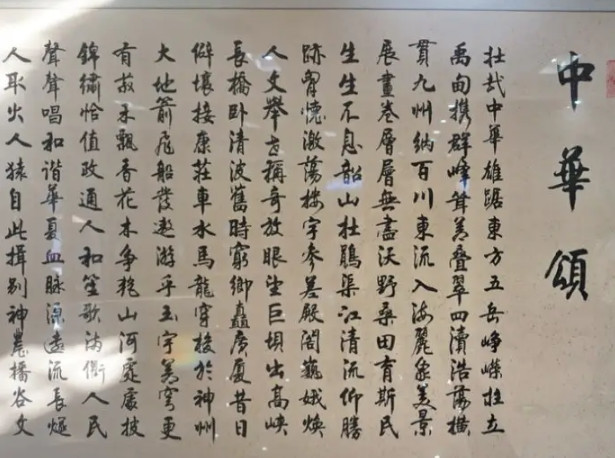 中華頌
壯哉中華雄踞東方五岳崢嶸柱立
禹甸攜群峰聳美疊翠四瀆浩蕩橫
貫九州納百川東流入海麗象美景
展畫卷層層無盡沃野桑田育斯民
生生不息韶山杜鵑渠江清流仰勝
跡胸憶激蕩樓宇參差殿閣巍峨煥
人文舉世稱奇放眼望巨壩出高峽
長橋卧清波舊時窮鄉矗廣廈昔日
僻壤接康莊車水馬龍穿梭於神州
大地箭飛船發遨游乎玉宇蒼穹更
有菽禾飄香花木爭艷山河處處披
錦繡恰值政通人和笙歌滿衢人民
聲聲唱和諧華夏血脈源遠流長燧
人取火人猿自此揖別神農播谷文